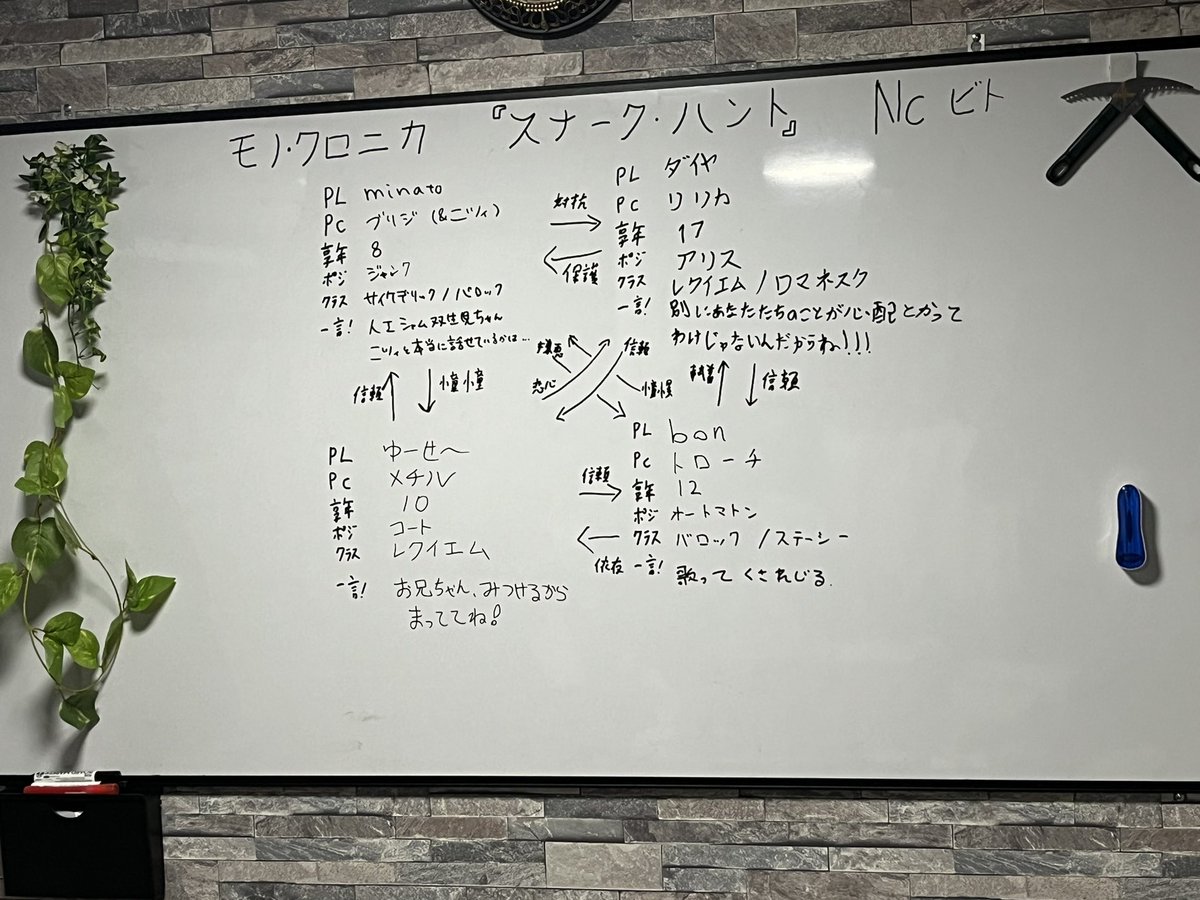 モノ・クロニカ 『スナーク・ハント』 Nc ビト
PL minato
Pc ブリジ (&ニツィ)
享年 8
ポジ ジャンク
クラス サイケデリック/バロック
一言! 人工シャム双生児ちゃん
ニツィと本当に話せているかは…
対抗
保護
PL ダイヤ
Pc リリカ
享年 17
ポジ アリス
クラス レクイエム/ロマネスク
一言! 別にあなたたちのことが心配とかって
わけじゃないんだからね!!!
信頼
憧憬
恋心
信頼
憧憬
信頼
PL ゆーせ〜
Pc メチル
享年 10
ポジ コート
クラス レクイエム
一言! お兄ちゃん、みつけるから
まっててね!
信頼
依存
PL bon
Pc トローチ
享年 12
ポジ オートマトン
クラス バロック/ステーシー
一言! 歌って くされじる.